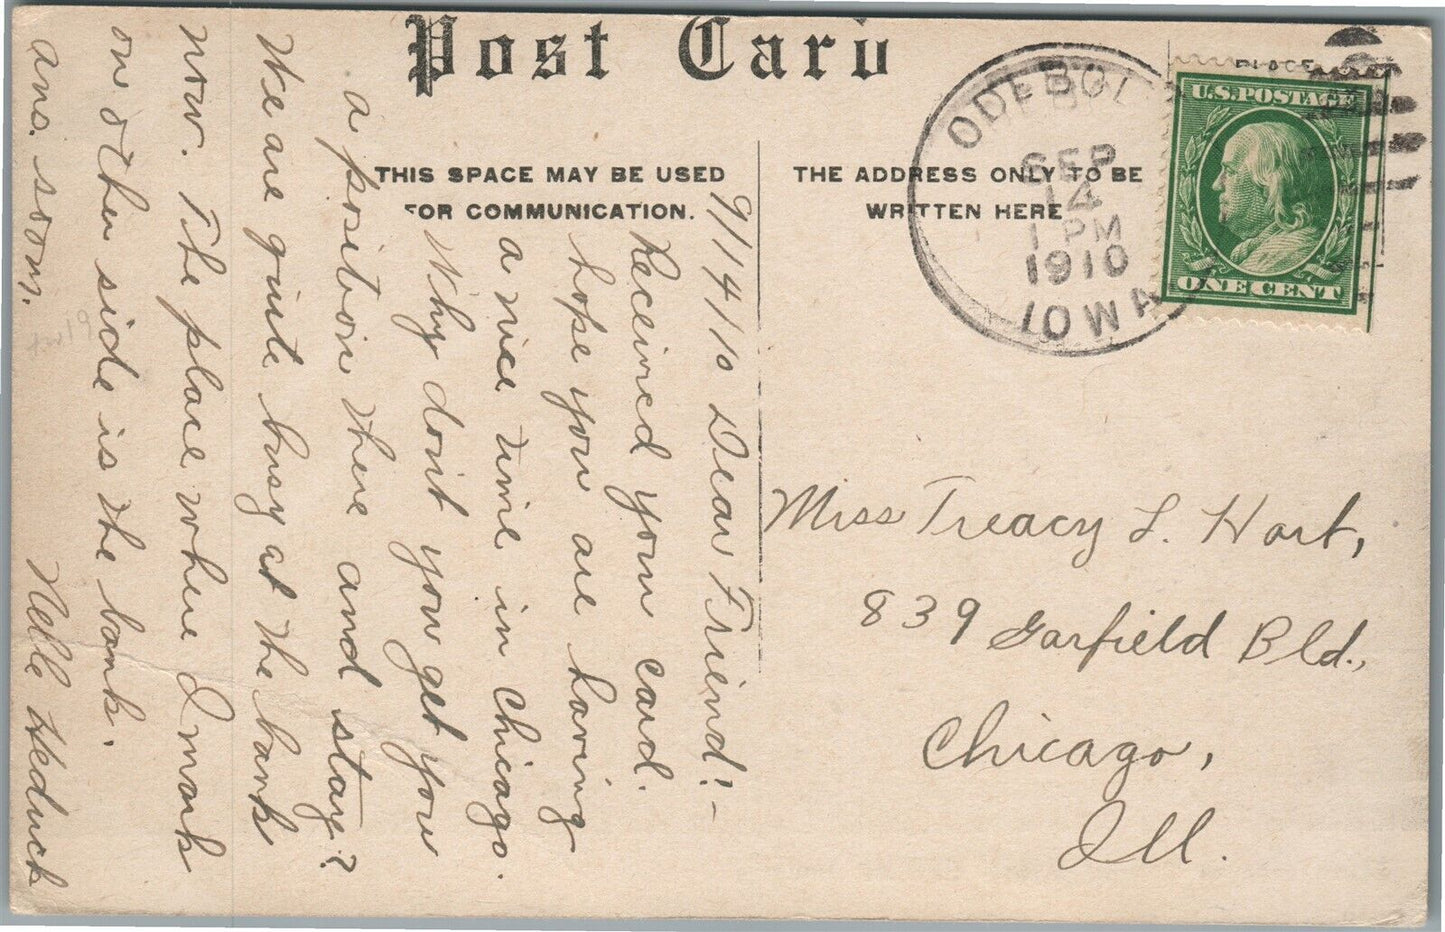 Post Card
THIS SPACE MAY BE USED
FOR COMMUNICATION.
THE ADDRESS ONLY TO BE
WRITTEN HERE
PLACE
ODEBOLT
SEP
14
1 PM
1910
IOWA
U.S. POSTAGE
ONE CENT
9/14/10 Dear Friend:-
Received your card.
hope you are having
a nice time in Chicago.
Why don't you get you
a position there and stay?
We are quite busy at the bank
now. The place where I mark
on other side is the bank.
ans. soon. Nelle Heduck
Miss Treacy L. Hart,
839 Garfield Bld.,
Chicago,
Ill.